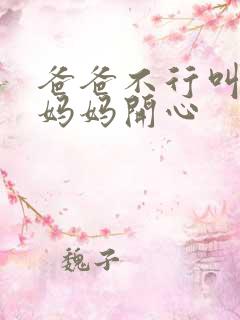 爸爸不行叫
妈妈開心
魏子